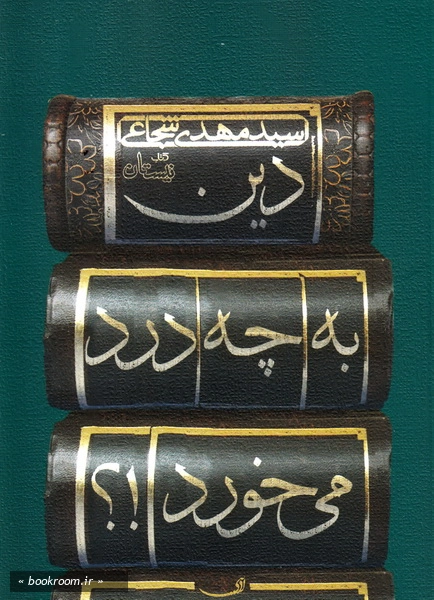 سید مهدی شجاعی
کتاب نیستان
دین
به چه درد
می‌خورد !؟
« bookroom.ir »